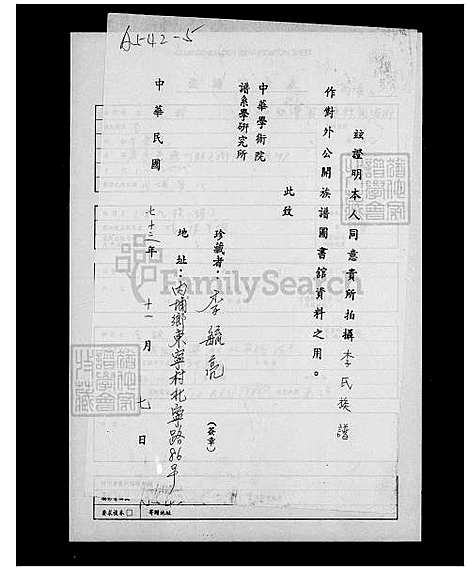 A542-5
茲證明本人同意貴所拍攝李氏族譜
作對外公開族譜圖書館資料之用。
此致
中華學術院
譜系學研究所
珍藏者：李毓亮（簽章）
地址：內埔鄉東寧村北寧路86号
中華民國七十三年十一月七日
FamilySearch
要求談本□
寄贈地址